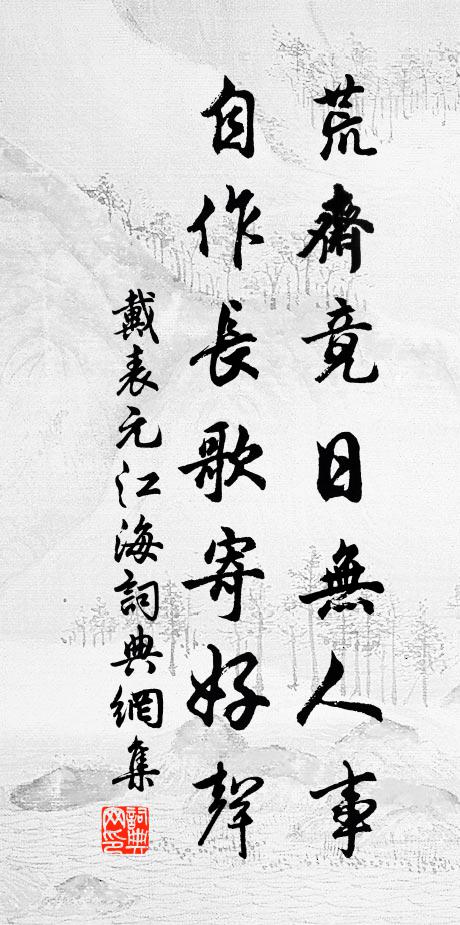 荒齋竟日無人事
自作長歌寄好聲
戴表元江海詞典網集
詞典網印